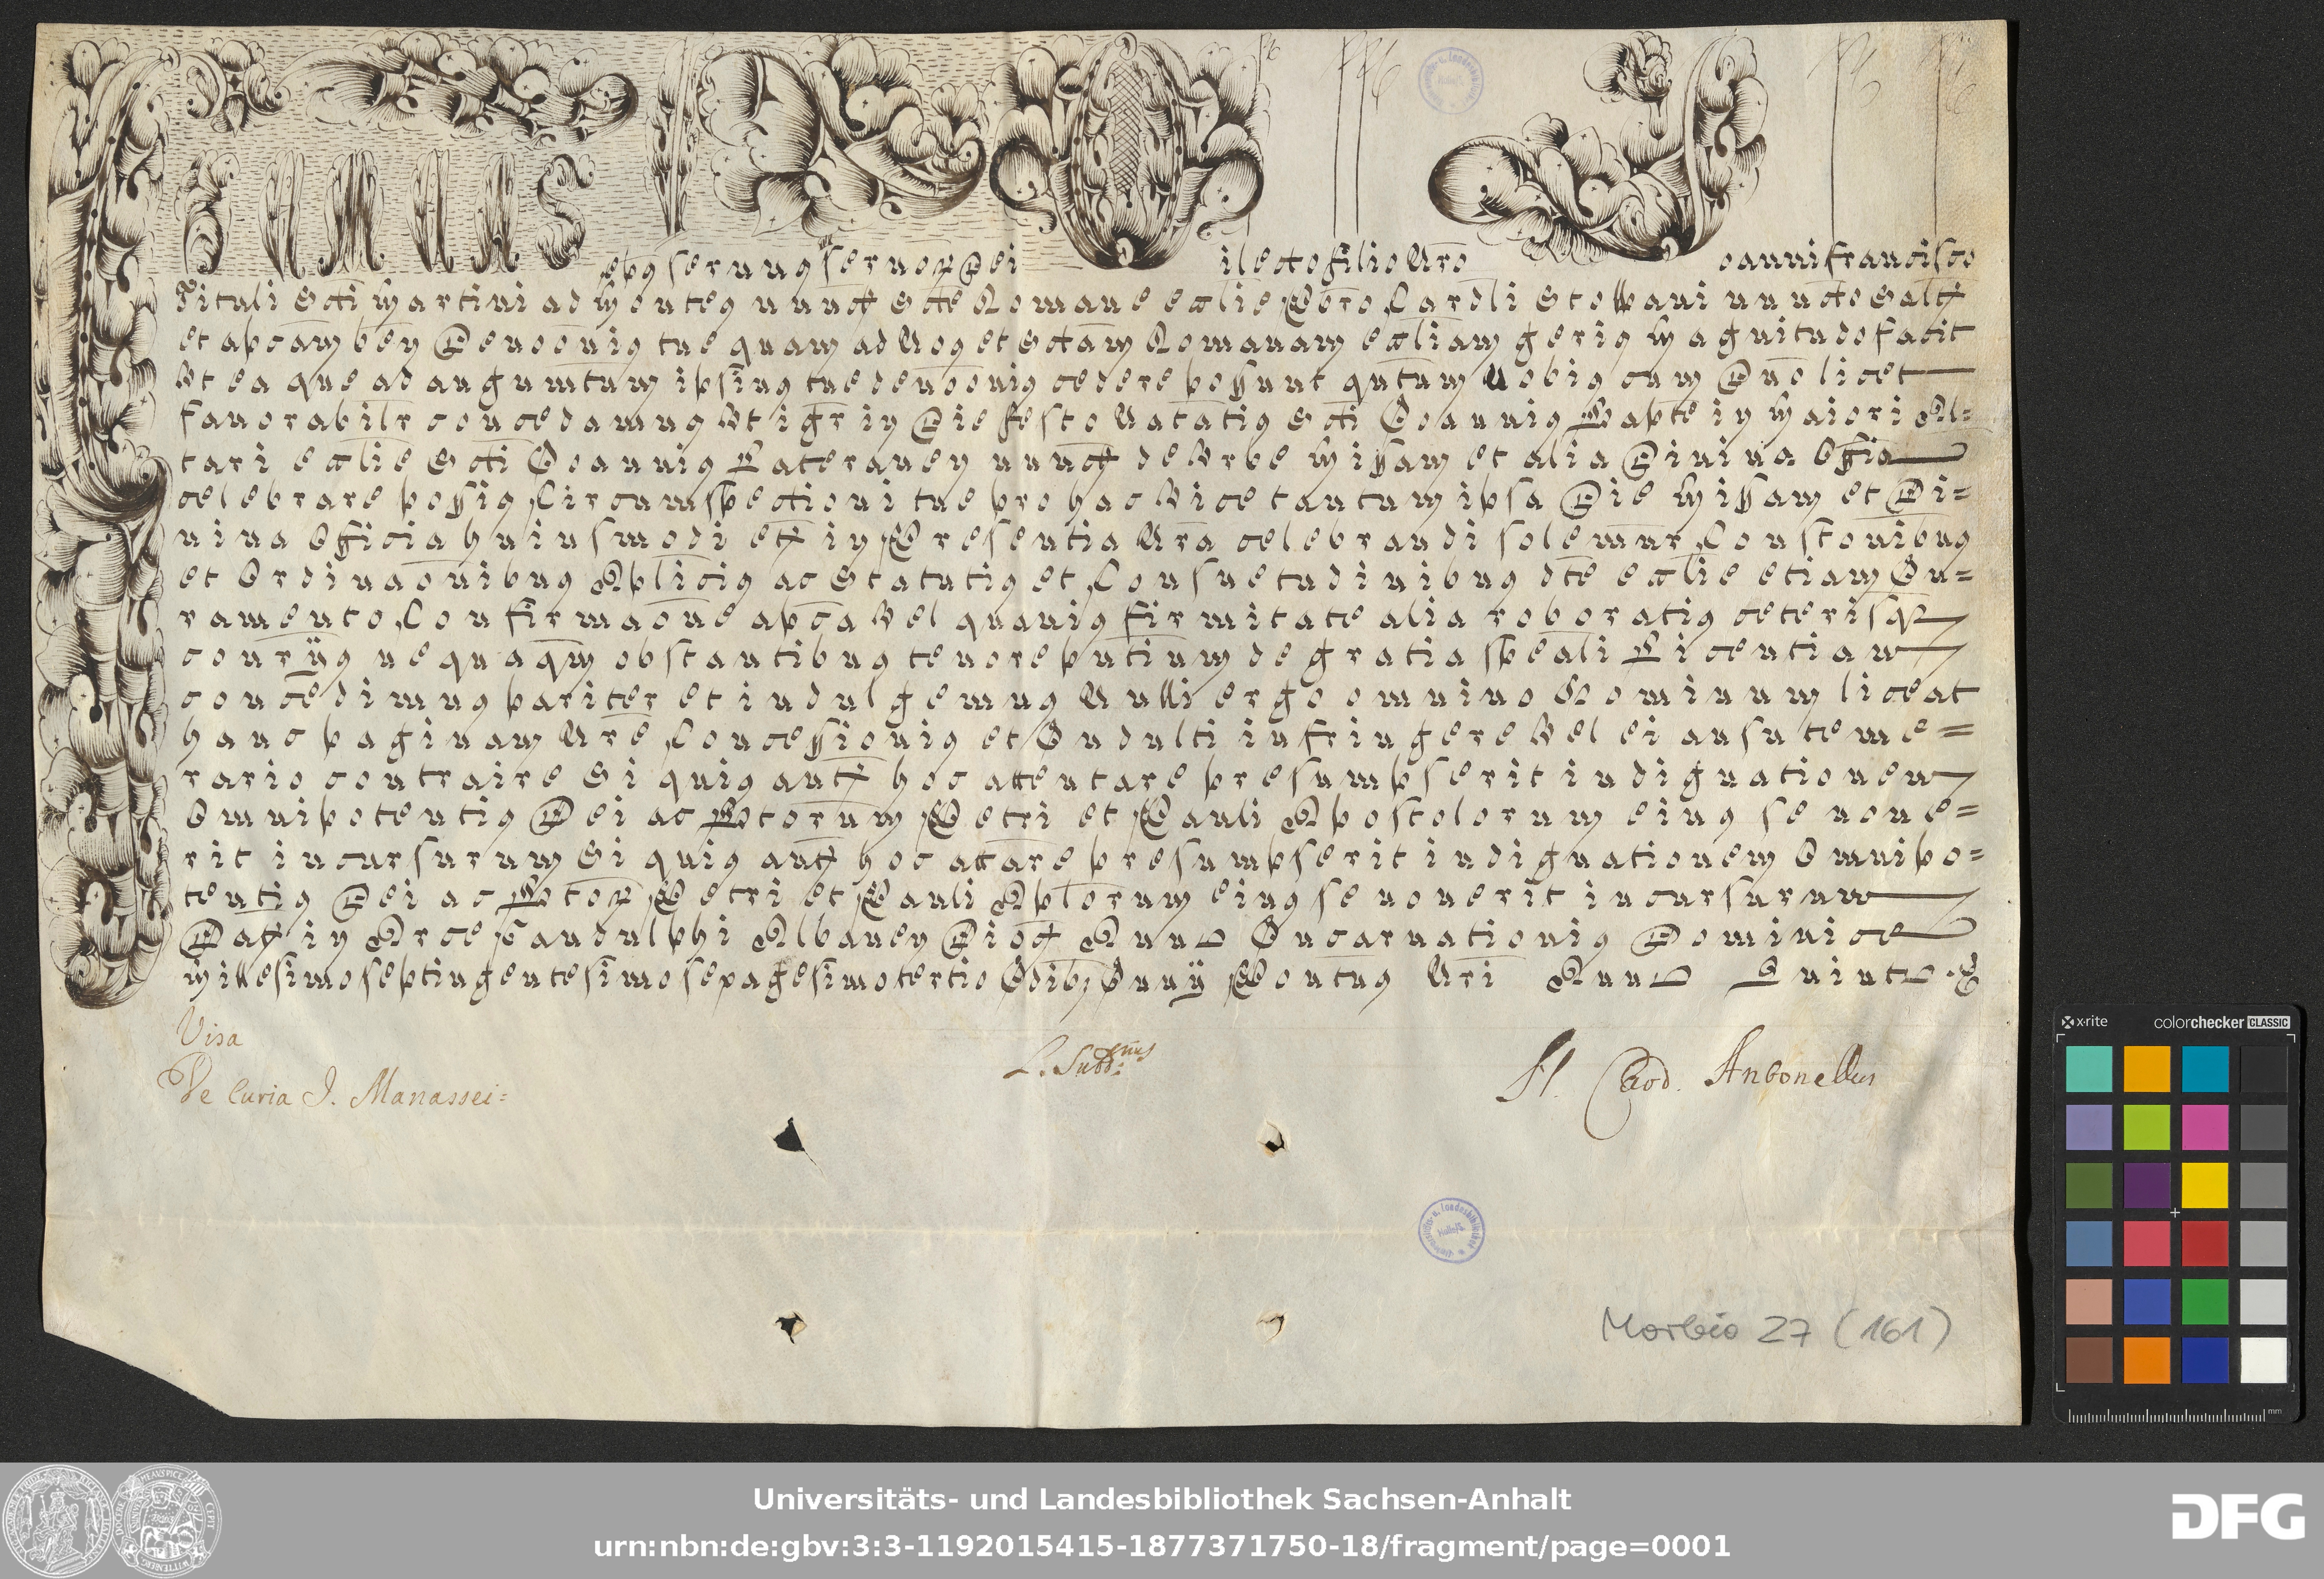 CLEMENS EPISCOPUS
ep̄us seruus seruor̄ Dei ilecto filio n̄ro oanni francisco
Tituli S̄cti Martini ad Montes nunct S̄cte Romane ecclīe Pb̄ro Cardli Stoppani nuncto Saltm̄
et apc̄am ben Deuoc̄onis tue quam ad Nos et S̄ctam Romanam eccl̄iam geris Magnitudo facit
Vt ea que ad augumtum ipsius tue deuōonis cedere possunt quntum Nobis cum Dn̄o licet
fauorabilr concedamus Vt igr in Die festo Natatis S̄cti Joannis Bapte in Maiori Al=
tari ecclīe S̄cti Joannis Lateranen nunct de Vrbe Missam et alia Diuina Offia
celebrare possis Circumspectioni tue pro hac Vice tantum ipsa Die Missam et Di=
uina Officia huiusmodi et̄ in Presentia Nra celebrandi solemnr Constonibus
et Ordinaōnibus Aplicis ac Statutis et Consuetudinibus dte ecclīe etiam Ju=
ramento Confirmaōne apca Vel quauis firmitate alia roboratis ceterisq
conrijs nequaqm obstantibus tenore pntium de gratia speāli Licentiam
concedimus pariter et indulgemus Nulli ergo omnino Hominum liceat
hanc paginam Nr̄e Concessionis et Indulti infringere Vel ei ausu teme=
rario contraire Si quis aut̄ hoc attentare presumpserit indignationem
Omnipotentis Dei ac Btorum Petri et Pauli Apostolorum eius se noue=
rit incursurum Si quis aut̄ hoc attare presumpserit indignationem Omnipo=
tentis Dei ac Btor̄ Petri et Pauli Aplorum eius se nouerit incursurum
Dat̄ in Arce Gandulphi Albanen Dioc̄ Anno Incarnationis Dominice
Millesimo septingentesimo sexagesimo tertio Idib; Junij Pontus Nri Anno Quinto
Visa
De Curia J. Manassei=
L. Subd:nus
N. Card. Antonellus
Morbio 27 (161)
x-rite
colorchecker CLASSIC
mm
Universitäts- und Landesbibliothek Sachsen-Anhalt
urn:nbn:de:gbv:3:3-1192015415-1877371750-18/fragment/page=0001
DFG